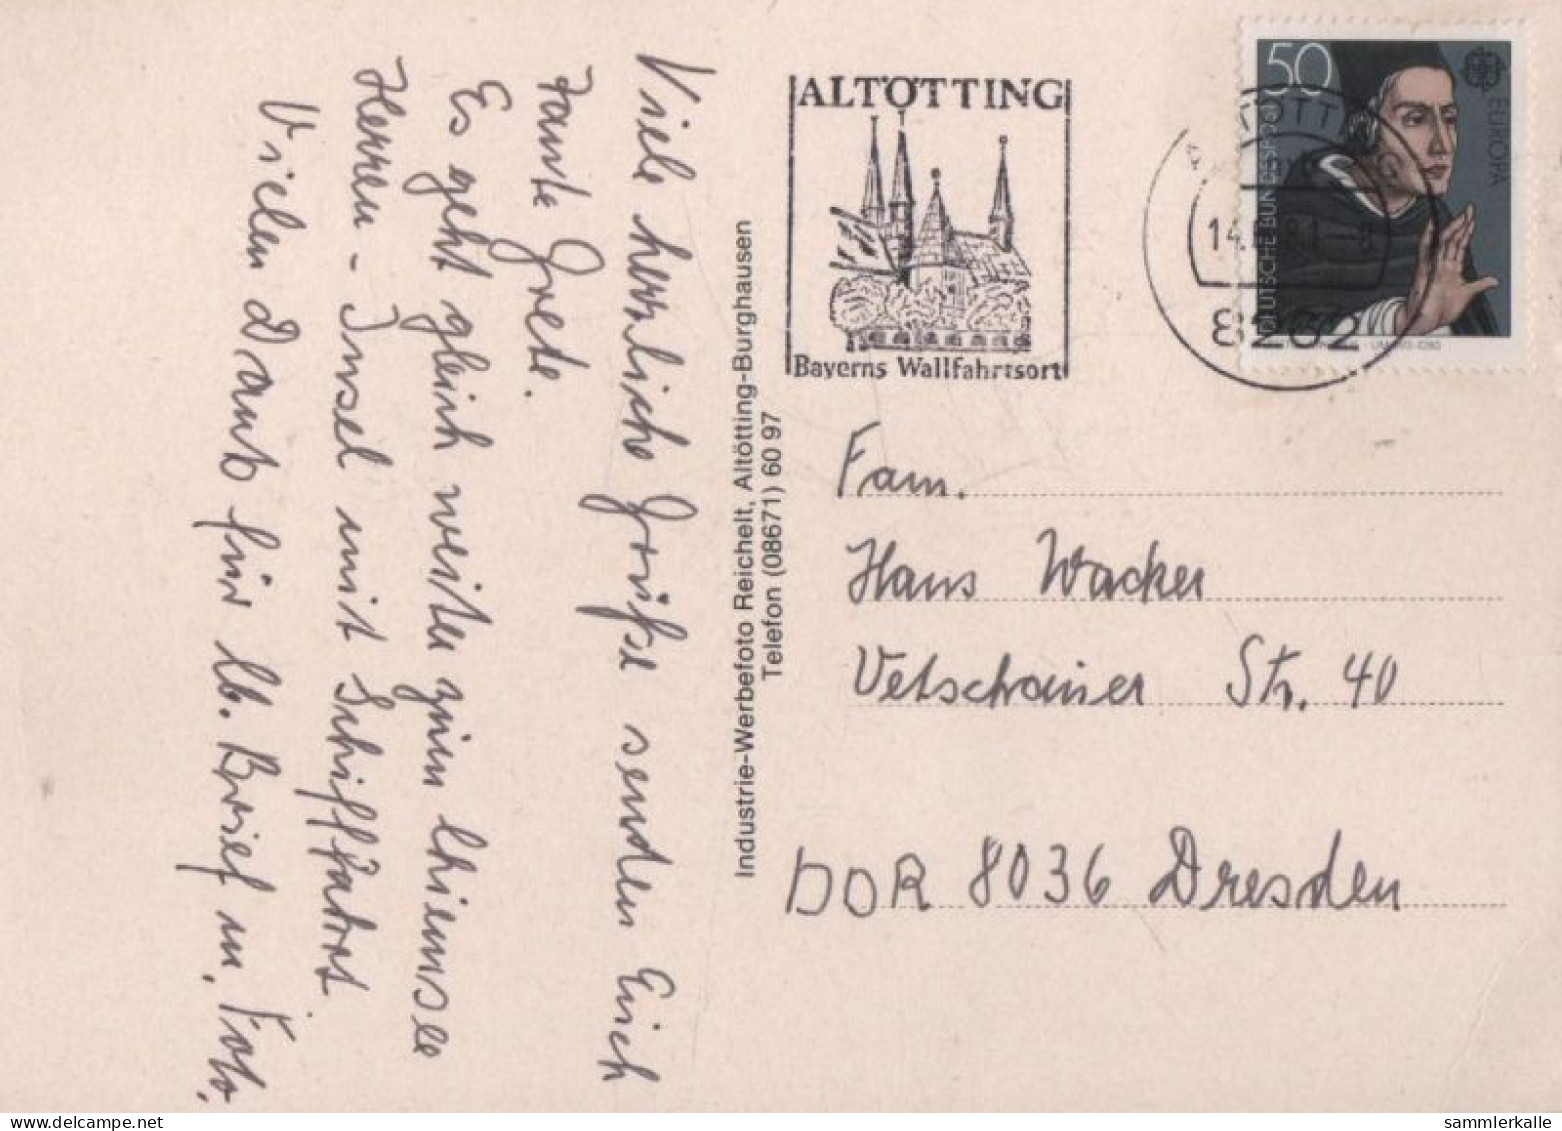 Viele herzliche Grüße senden Euch
Tante Grete.
Es geht gleich weiter zum Chiemsee
Herren-Insel mit Schiffahrt.
Vielen Dank für lb. Brief m. Foto.
Industrie-Werbefoto Reichelt, Altötting-Burghausen
Telefon (08671) 60 97
ALTÖTTING
Bayerns Wallfahrtsort
8262
50
EUROPA
DEUTSCHE BUNDESPOST
Fam.
Hans Wacker
Str. 40
DDR 8036 Dresden
sammlerkalle